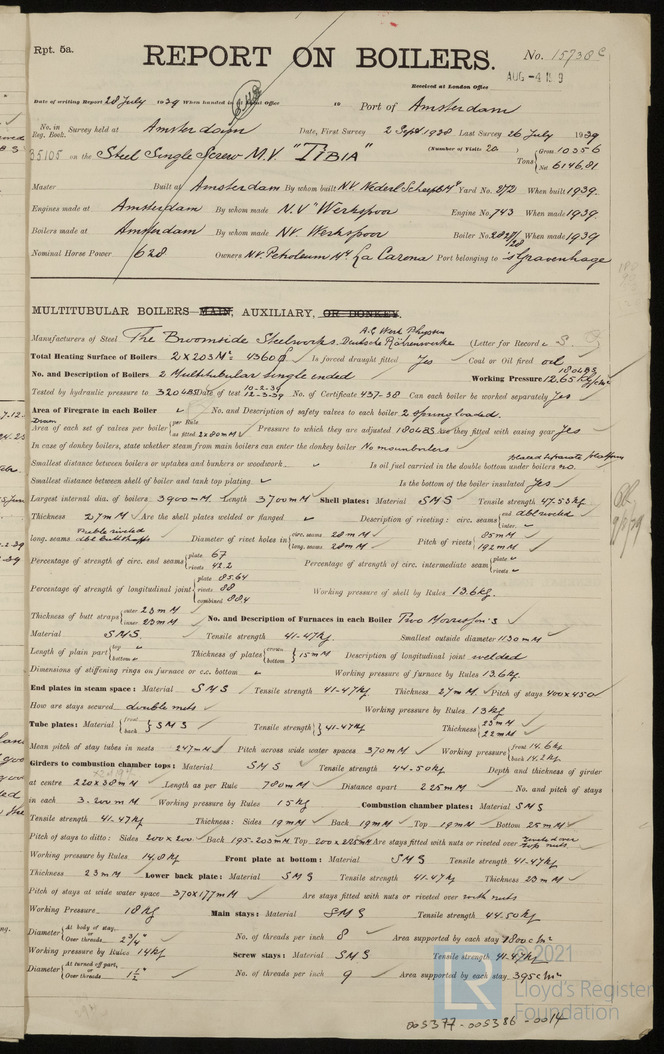 Rpt. 5a.
REPORT ON BOILERS.
No. 15738c
Received at London Office
AUG -4
Date of writing Report 28 July 1939 When handed in at Local Office 19 Port of Amsterdam
No. in Reg. Book. Survey held at Amsterdam Date, First Survey 2 Sept 1938 Last Survey 26 July 1939
35105 on the Steel Single Screw M.V. "TIBIA" (Number of Visits 20 ) Tons Gross 10356 Net 6146.81
Master Built at Amsterdam By whom built N.V. Nederl Scheepb Mij Yard No. 272 When built 1939.
Engines made at Amsterdam By whom made N.V "Werkspoor Engine No. 743 When made 1939.
Boilers made at Amsterdam By whom made NV. Werkspoor Boiler No. 2827/28 When made 1939
Nominal Horse Power 628 Owners N.V. Petroleum My La Carona Port belonging to 's Gravenhage
MULTITUBULAR BOILERS—MAIN, AUXILIARY, OR DONKEY.
Manufacturers of Steel The Broomside Steelworks. Deutsche Röhrenwerke A.G. Werk Thyssen (Letter for Record S.
Total Heating Surface of Boilers 2 x 203 M² 4360 Is forced draught fitted Yes Coal or Oil fired oil
No. and Description of Boilers 2 Multitubular single ended Working Pressure 180 LBS 12.65 Kg/cm²
Tested by hydraulic pressure to 320 LBS Date of test 10-2-39 12-3-39 No. of Certificate 437-38 Can each boiler be worked separately Yes
Area of Firegrate in each Boiler No. and Description of safety valves to each boiler 2 spring loaded.
Area of each set of valves per boiler per Rule as fitted 2 x 80 mM Pressure to which they are adjusted 180 LBS Are they fitted with easing gear Yes
In case of donkey boilers, state whether steam from main boilers can enter the donkey boiler No main boilers
Smallest distance between boilers or uptakes and bunkers or woodwork placed separate platform Is oil fuel carried in the double bottom under boilers no.
Smallest distance between shell of boiler and tank top plating. Is the bottom of the boiler insulated Yes
Largest internal dia. of boilers 3900 mM Length 3700 mM Shell plates: Material SMS Tensile strength 47-53 kg
Thickness 27 mM Are the shell plates welded or flanged Description of riveting: circ. seams end dbl riveted inter.
long. seams Treble riveted dbl butt straps Diameter of rivet holes in circ. seams 28 mM long. seams 28 mM Pitch of rivets 85 mM 192 mM
Percentage of strength of circ. end seams plate 67 rivets 42.2 Percentage of strength of circ. intermediate seam plate rivets
Percentage of strength of longitudinal joint plate 85.64 rivets 88 combined 88.4 Working pressure of shell by Rules 13.6 kg.
Thickness of butt straps outer 23 mM inner 23 mM No. and Description of Furnaces in each Boiler Two Morrison's
Material SMS. Tensile strength 41-47 kg. Smallest outside diameter 1130 mM
Length of plain part top bottom Thickness of plates crown bottom 15 mM Description of longitudinal joint welded
Dimensions of stiffening rings on furnace or c.c. bottom Working pressure of furnace by Rules 13.6 kg.
End plates in steam space: Material SMS Tensile strength 41-47 kg Thickness 27 mM Pitch of stays 400 x 450
How are stays secured double nuts Working pressure by Rules 13 kg
Tube plates: Material front back SMS Tensile strength 41-47 kg Thickness 23 mM 22 mM
Mean pitch of stay tubes in nests 247 mM Pitch across wide water spaces 370 mM Working pressure front 14.6 kg back 14.2 kg
Girders to combustion chamber tops: Material SMS Tensile strength 44-50 kg Depth and thickness of girder
at centre 220 x 38 mM Length as per Rule 780 mM Distance apart 225 mM No. and pitch of stays
in each 3. 200 mM Working pressure by Rules 15 kg Combustion chamber plates: Material SMS
Tensile strength 41-47 kg Thickness: Sides 19 mM Back 19 mM Top 19 mM Bottom 25 mM
Pitch of stays to ditto: Sides 200 x 200 Back 195-203 mM Top 200 x 225 mM Are stays fitted with nuts or riveted over riveted over top nuts
Working pressure by Rules 14,8 kg Front plate at bottom: Material SMS Tensile strength 41-47 kg
Thickness 23 mM Lower back plate: Material SMS Tensile strength 41-47 kg Thickness 23 mM
Pitch of stays at wide water space 370 x 177 mM Are stays fitted with nuts or riveted over with nuts
Working Pressure 18 kg Main stays: Material SMS Tensile strength 44-50 kg
Diameter At body of stay, or Over threads 2 3/4" No. of threads per inch 8 Area supported by each stay 1800 cm²
Working pressure by Rules 14 kg Screw stays: Material SMS Tensile strength 41-47 kg
Diameter At turned off part, or Over threads 1 1/2" No. of threads per inch 9 Area supported by each stay 395 cm²
© 2021
LR Lloyd's Register Foundation
005377-005386-0014